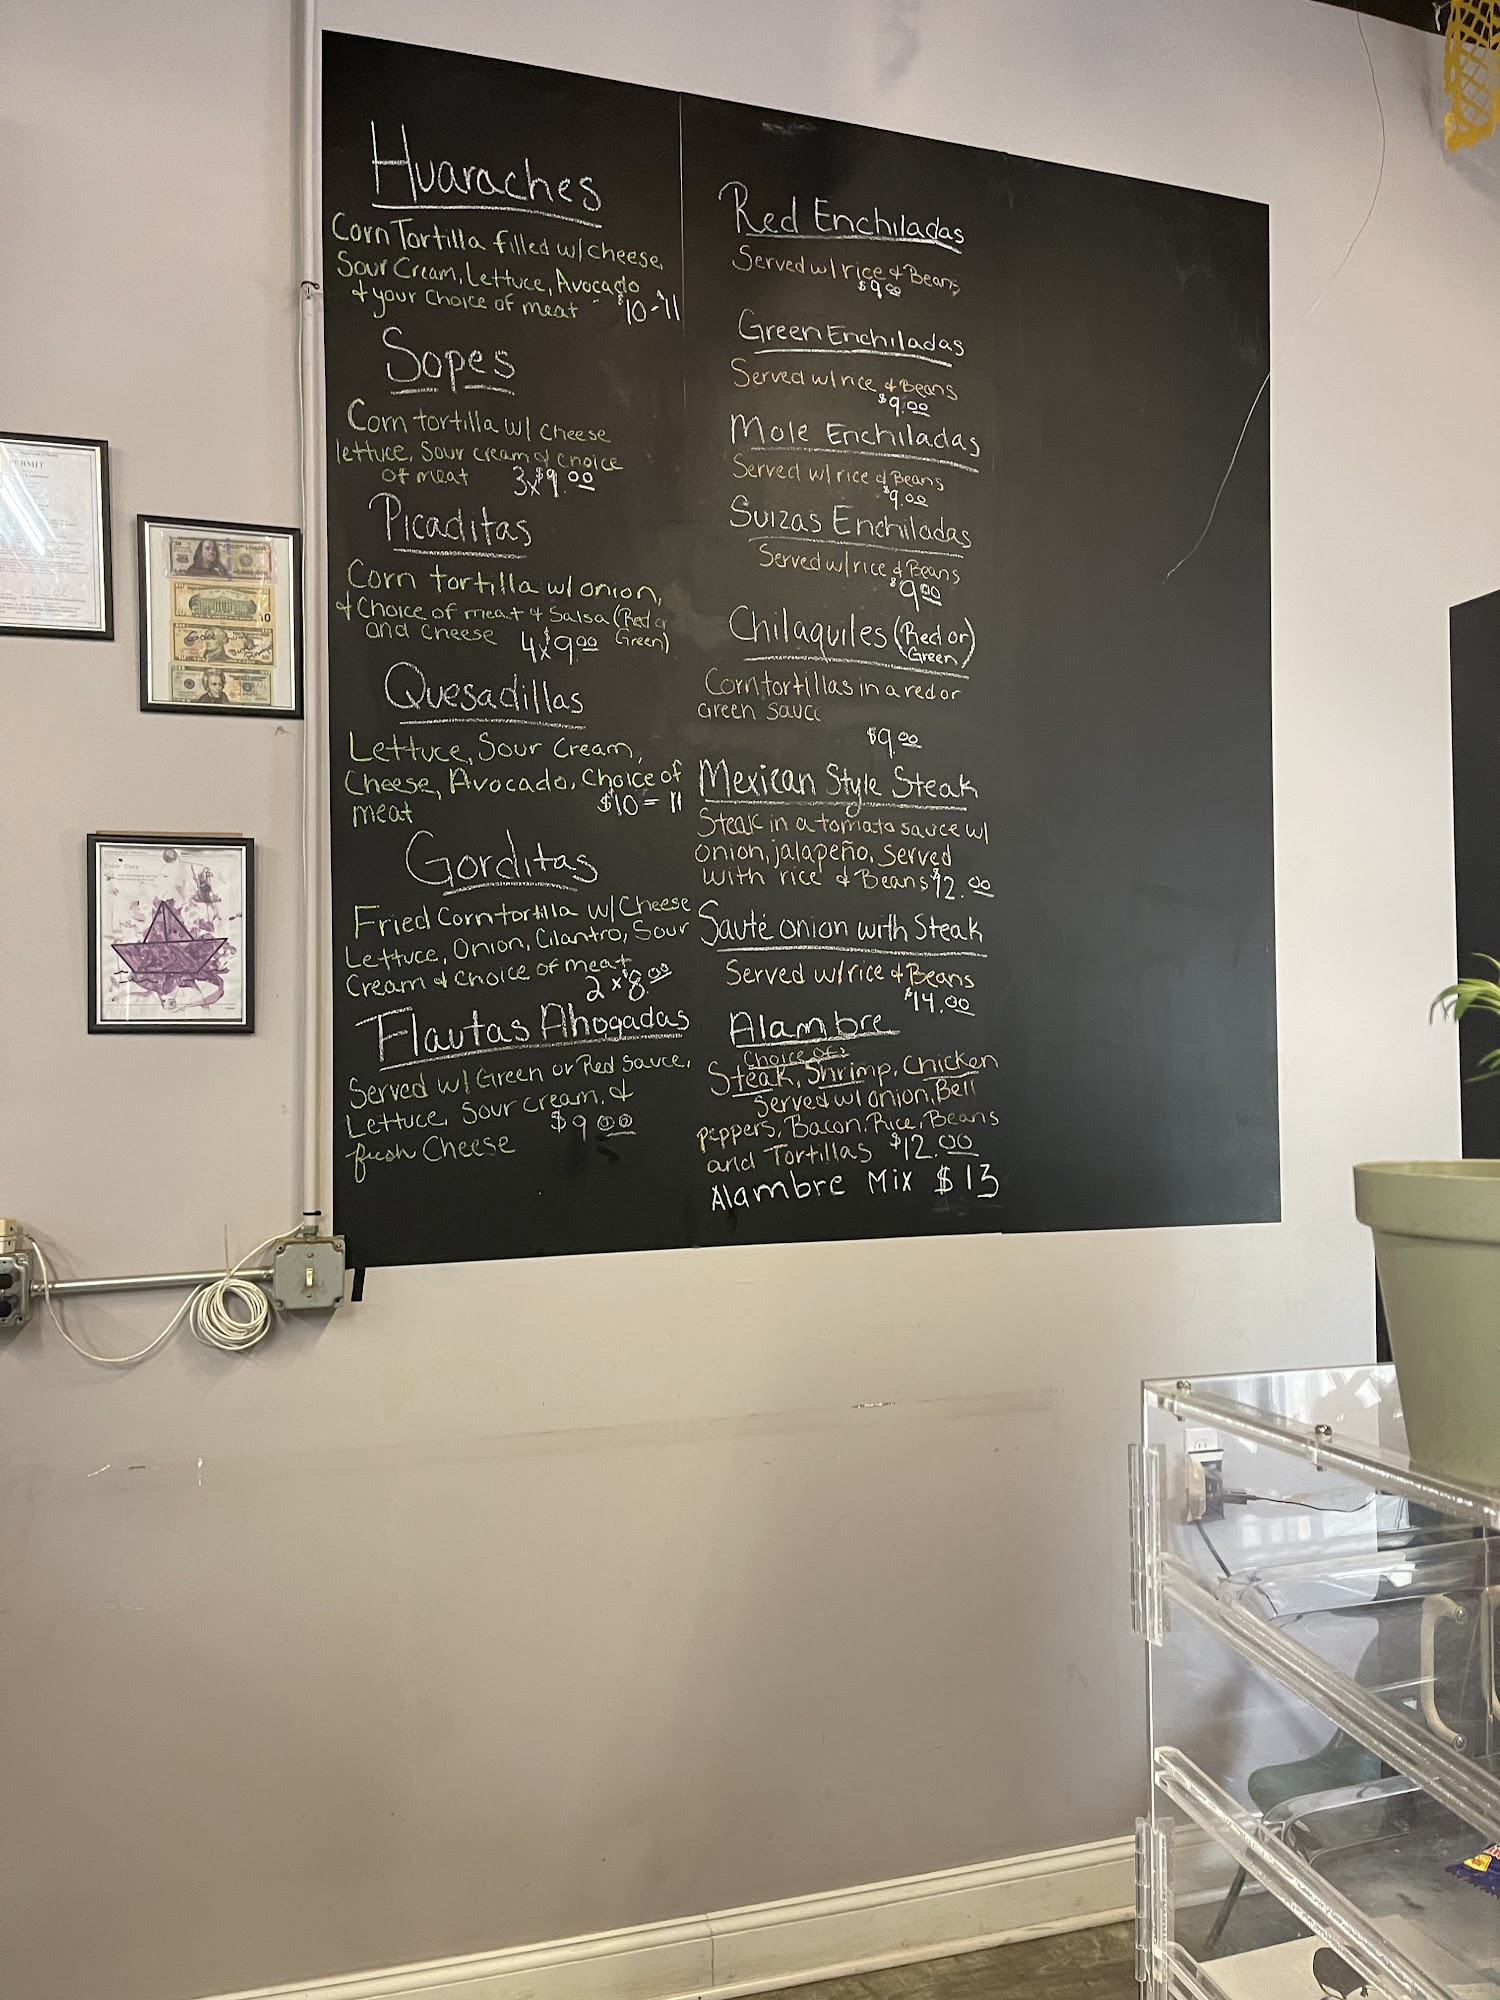 Huaraches
Corn Tortilla filled w/cheese,
Sour Cream, Lettuce, Avocado
& your Choice of meat $10-$11
Sopes
Corn tortilla w/ cheese
lettuce, Sour cream & choice
of meat 3x$9.00
Picaditas
Corn tortilla w/ onion,
& Choice of meat & Salsa (Red or
and cheese 4x$9.00 Green)
Quesadillas
Lettuce, Sour Cream,
Cheese, Avocado, Choice of
meat $10 = 11
Gorditas
Fried Corn tortilla w/ Cheese
Lettuce, Onion, Cilantro, Sour
Cream & Choice of meat
2 x $8.00
Flautas Ahogadas
Served w/ Green or Red Sauce,
Lettuce, Sour cream, &
fresh Cheese $9.00
Red Enchiladas
Served w/ rice & Beans
$9.00
Green Enchiladas
Served w/ rice & Beans
$9.00
Mole Enchiladas
Served w/ rice & Beans
$9.00
Suizas Enchiladas
Served w/ rice & Beans
$9.00
Chilaquiles (Red or
Green)
Corn tortillas in a red or
Green sauce
$9.00
Mexican Style Steak
Steak in a tomato sauce w/
onion, jalapeño, Served
with rice & Beans $12.00
Sauté onion with Steak
Served w/ rice & Beans
$14.00
Alambre
Choice of:
Steak, Shrimp, Chicken
Served w/ onion, Bell
peppers, Bacon, Rice, Beans
and Tortillas $12.00
Alambre Mix $13
PERMIT